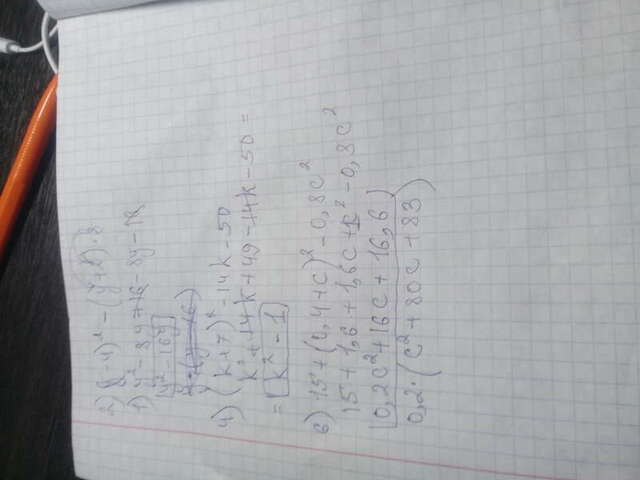 2) (y-4)² - (y+2)·8
1) y² - 8y + 16 - 8y - 16
y² - 16y
y·(y-16)
4) (k+7)² - 14k - 50
k² + 14k + 49 - 14k - 50 =
= k² - 1
6) 15 + (0,4+c)² - 0,8c²
15 + 1,6 + 1,6c + c² - 0,8c²
0,2c² + 16c + 16,6
0,2·(c² + 80c + 83)